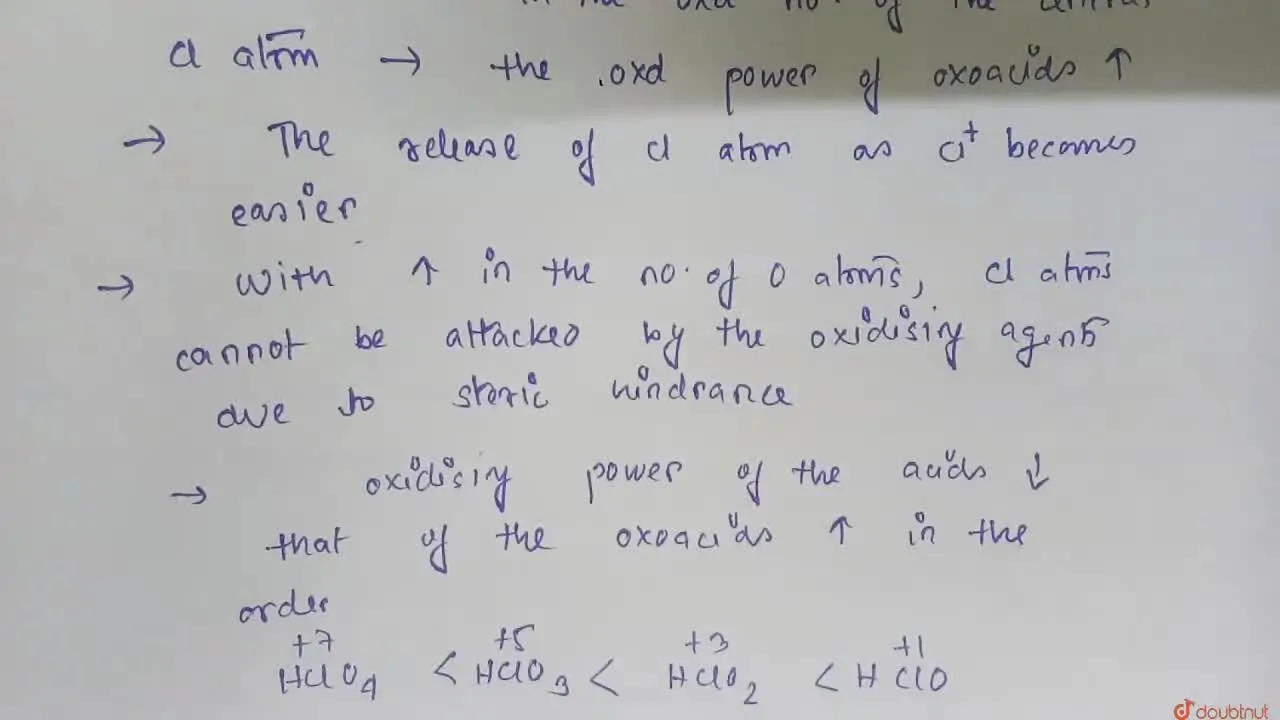 in the oxd no. of the central
Cl atom → the oxd power of oxoacids ↑
→ The release of Cl atom as Cl⁺ becomes
easier
→ With ↑ in the no. of O atoms, Cl atoms
cannot be attacked by the oxidising agents
due to steric hindrance
→ oxidising power of the acids ↓
that of the oxoacids ↑ in the
order
+7 +5 +3 +1
HClO₄ < HClO₃ < HClO₂ < HClO
doubtnut